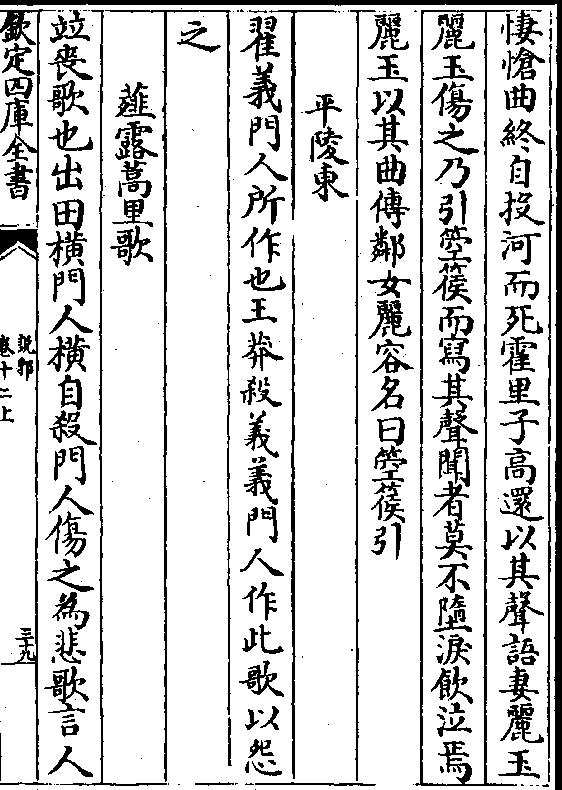 悽愴曲終自投河而死霍里子高還以其聲語妻麗玉
麗玉傷之乃引箜篌而寫其聲聞者莫不墮淚飲泣焉
麗玉以其曲傳鄰女麗容名曰箜篌引
平陵東
翟義門人所作也王莽殺義義門人作此歌以怨
之
薤露蒿里歌
竝喪歌也出田橫門人橫自殺門人傷之為悲歌言人
欽定四庫全書
說郛
卷十二上
三十九